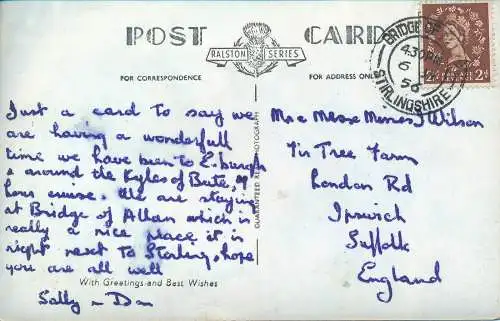 POST CARD
RALSTON SERIES
FOR CORRESPONDENCE
FOR ADDRESS ONLY
BRIDGE OF
4 30 PM
6
56
STIRLINGSHIRE
Just a card to say we
are having a wonderfull
time we have been to E.burgh
& around the Kyles of Bute, 9
hour cruise. We are staying
at Bridge of Allan which is
really a nice place it is
right next to Stirling, hope
you are all well
Sally Dan
With Greetings and Best Wishes
GUARANTEED REAL PHOTOGRAPH
Wilson
Fir Tree Farm
London Rd
Ipswich
Suffolk
England